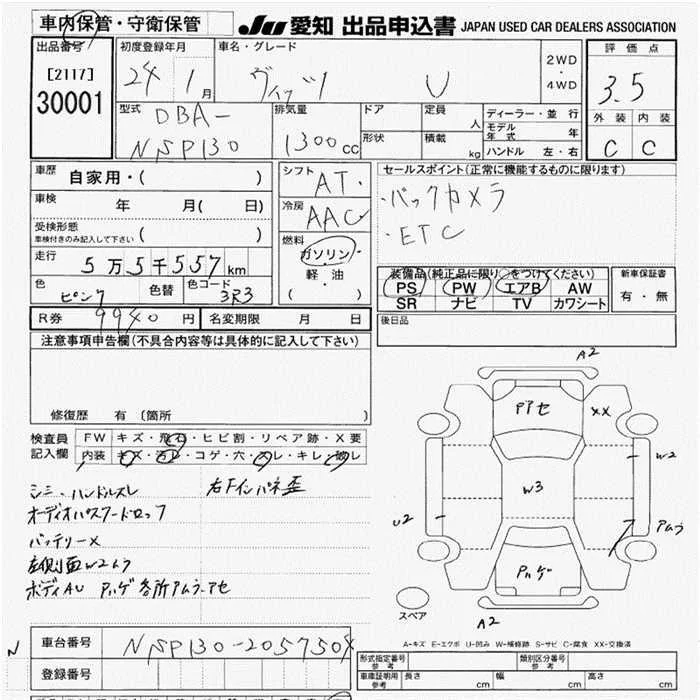 車内保管・守衛保管
JU 愛知 出品申込書 JAPAN USED CAR DEALERS ASSOCIATION
出品番号
[2117]
30001
初度登録年月
24 1月
車名・グレード
ヴィッツ U
2WD
・
4WD
評価点
3.5
外装 内装
C C
型式
DBA-
NSP130
排気量
1300cc
ドア
形状
定員
人
積載
kg
ディーラー・並行
モデル年式 年
ハンドル 左・右
車歴
自家用・( )
車検
年 月( 日)
受検形態
車検付きのみ記入して下さい ( )
走行
5万5千557km
色
ピンク
色替
色コード
3R3
シフト
AT・
冷房
AAC
燃料
ガソリン・
軽・油
( ・ )
セールスポイント(正常に機能するものに限ります)
・バックカメラ
・ETC
装備品(純正品に限り○をつけてください)
PS PW エアB AW
SR ナビ TV カワシート
新車保証書
有・無
後日品
R券 9940円
名変期限 月 日
注意事項申告欄(不具合内容等は具体的に記入して下さい)
修復歴 有 〔箇所
検査員
記入欄
FW キズ・飛石・ヒビ割・リペア跡・X要
内装 キズ・汚レ・コゲ・穴・スレ・キレ・劣化
シミ・ハンドルスレ 右下インパネ歪
オーディオパスワードロック
バッテリーX
左側面W2ムラ
ボディAU Pハゲ各所アムラ アセ
A2
Pアセ
XX
W2
W3
U2
アムラ
Pハゲ
A2
スペア
A-キズ E-エクボ U-凹み W-補修跡 S-サビ C-腐食 XX-交換済
N
車台番号
NSP130-2057504
登録番号
形式指定番号
参考
類別区分番号
参考
車庫証明用
参考
長さ cm
幅 cm
高さ cm